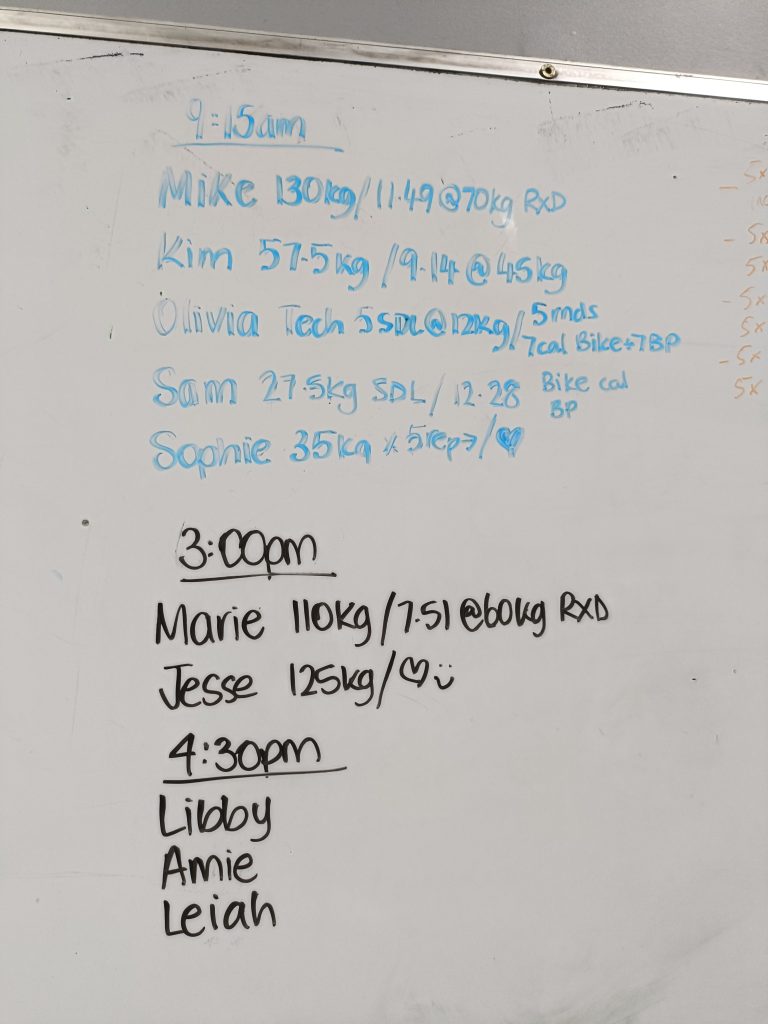 9:15am
Mike 130kg/11.49@70kg RXD
Kim 57.5kg/9.14@45kg
Olivia Tech 5SDL@12kg/5rnds
7cal Bike+7BP
Sam 27.5kg SDL/12.28 Bike cal
BP
Sophie 35kg x 5rep→/♡
3:00pm
Marie 110kg/7.51@60kg RXD
Jesse 125kg/♡
4:30pm
Libby
Amie
Leiah
- 5x
- 5x
5x
- 5x
5x
- 5x
5x